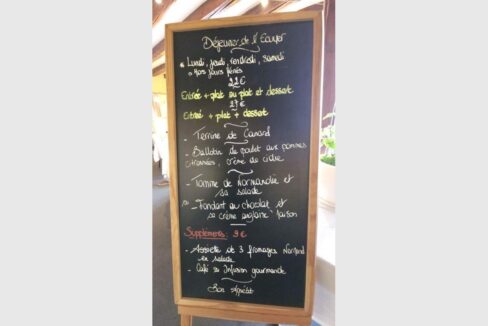 Déjeuner de l'Ecuyer
* Lundi, jeudi, vendredi, samedi
* Hors jours fériés
22€
Entrée + plat ou plat et dessert
27€
Entrée + plat + dessert
- Terrine de Canard
- Ballotin de poulet aux pommes
citronnées, crème de cidre
- Tomme de Normandie et
sa salade
ou
- Fondant au chocolat et
sa crème anglaise maison
Suppléments: 9€
- Assiette de 3 fromages Normand
en salade
- Café ou Infusion gourmande
Bon Appétit